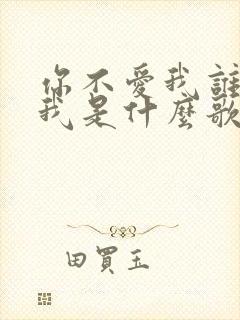 你不愛我誰
我是什麼歌
田買玉